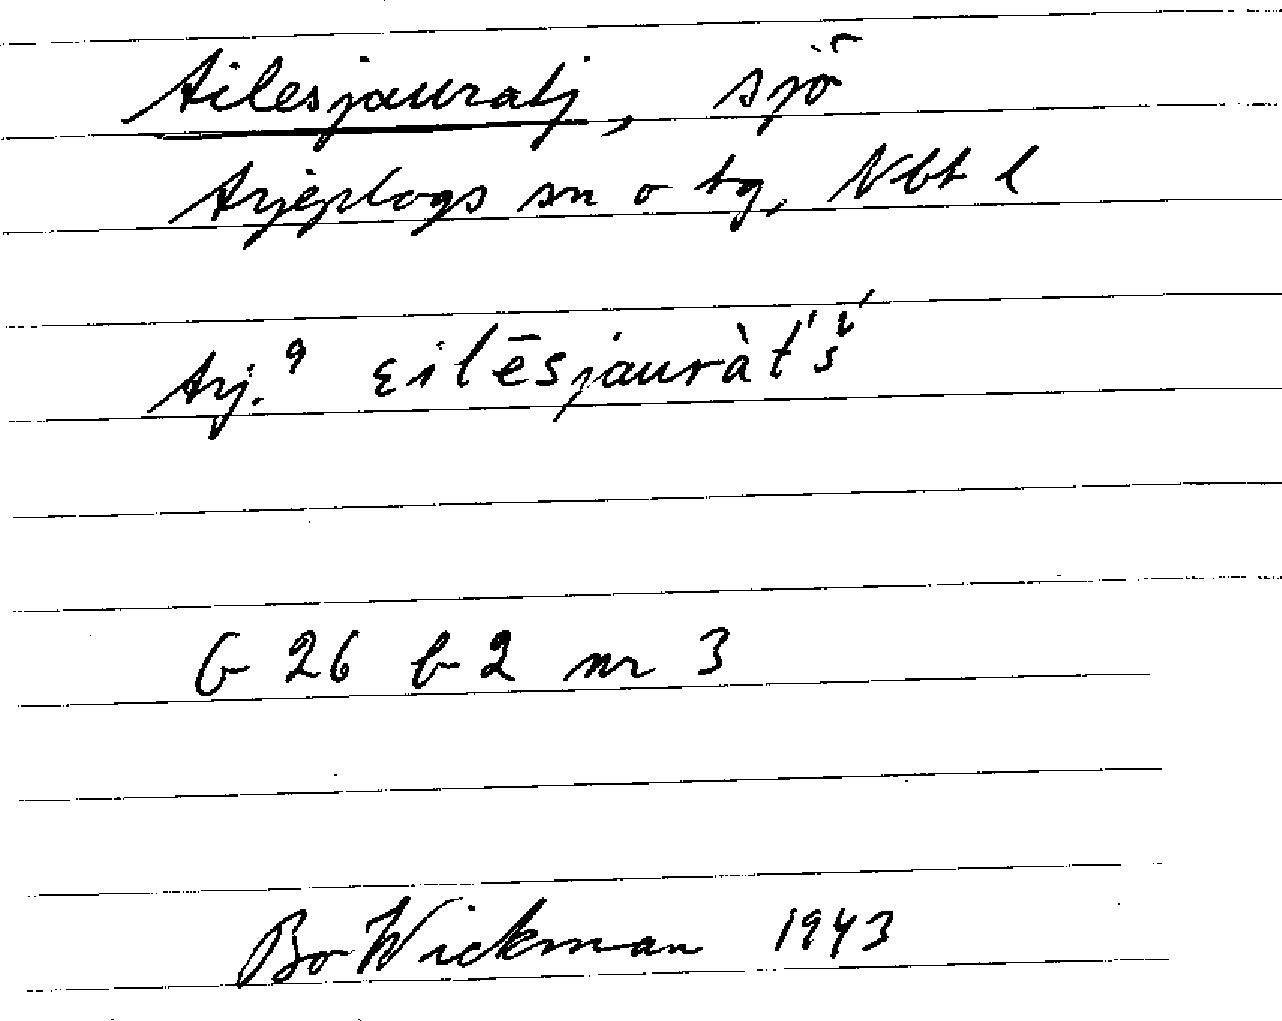 Ailesjauratj, sjö
Arjeplogs sn o tg, Nbt l
Arj.⁹ εilēsjauràt́'š́
G 26 b 2 nr 3
Bo Wickman 1943